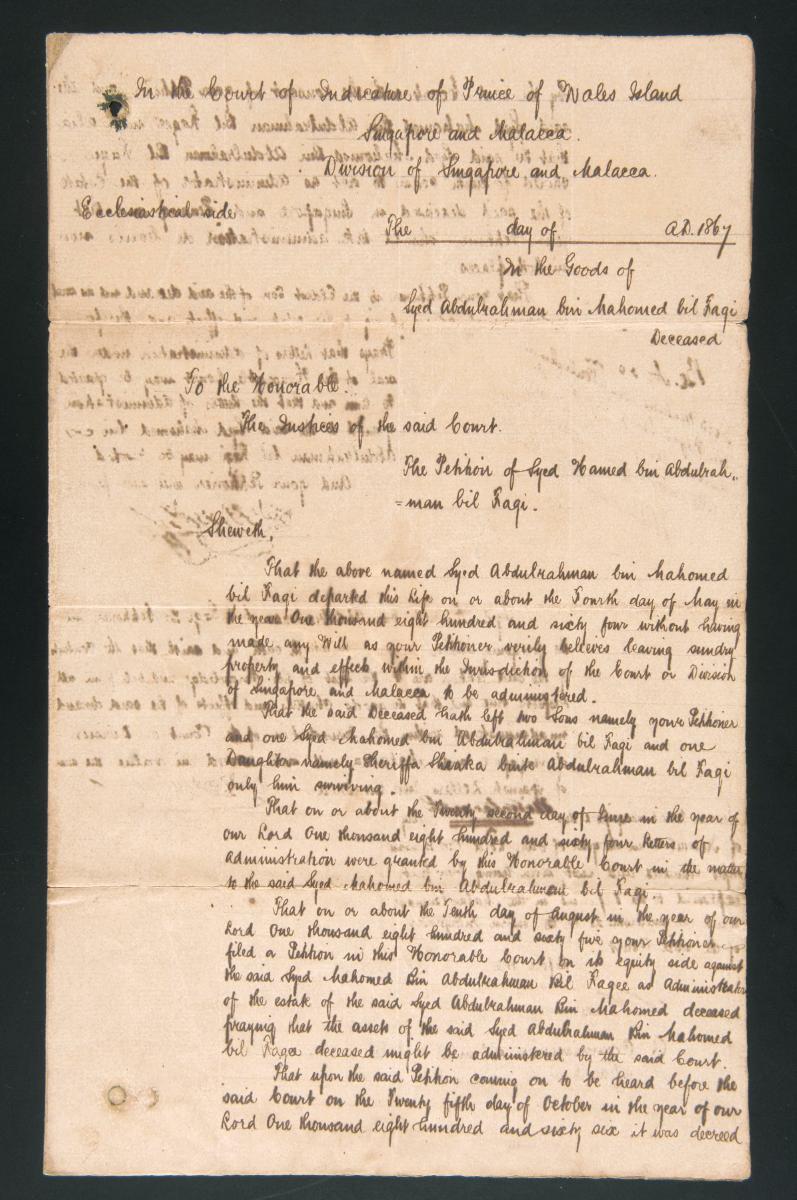 In the Court of Judicature of Prince of Wales Island
Singapore and Malacca.
Division of Singapore and Malacca.
Ecclesiastical side
The day of A.D. 1867
In the Goods of
Syed Abdulrahman bin Mahomed bil Faqi
Deceased
To the Honorable.
The Justices of the said Court.
The Petition of Syed Hamed bin Abdulrah„
=man bil Faqi.
Sheweth,
That the above named Syed Abdulrahman bin Mahomed
bil Faqi departed this life on or about the Fourth day of May in
the year One thousand eight hundred and sixty four without having
made any Will as your Petitioner verily believes leaving sundry
property and effects within the Jurisdiction of the Court or Division
of Singapore and Malacca to be administered.
That the said Deceased hath left two Sons namely your Petitioner
and one Syed Mahomed bin Abdulrahman bil Faqi and one
Daughter namely Sheriffa Shaaka binte Abdulrahman bil Faqi
only him surviving.
That on or about the Twenty second day of June in the year of
our Lord One thousand eight hundred and sixty four Letters of
Administration were granted by this Honorable Court in the matter
to the said Syed Mahomed bin Abdulrahman bil Faqi.
That on or about the Tenth day of August in the year of our
Lord One thousand eight hundred and sixty five your Petitioner
filed a Petition in this Honorable Court on its equity side against
the said Syed Mahomed Bin Abdulrahman Bil Fagee as Administrator
of the estate of the said Syed Abdulrahman Bin Mahomed deceased
praying that the assets of the said Syed Abdulrahman Bin Mahomed
bil Fagee deceased might be administered by the said Court.
That upon the said Petition coming on to be heard before the
said Court on the Twenty fifth day of October in the year of our
Lord One thousand eight hundred and sixty six it was decreed